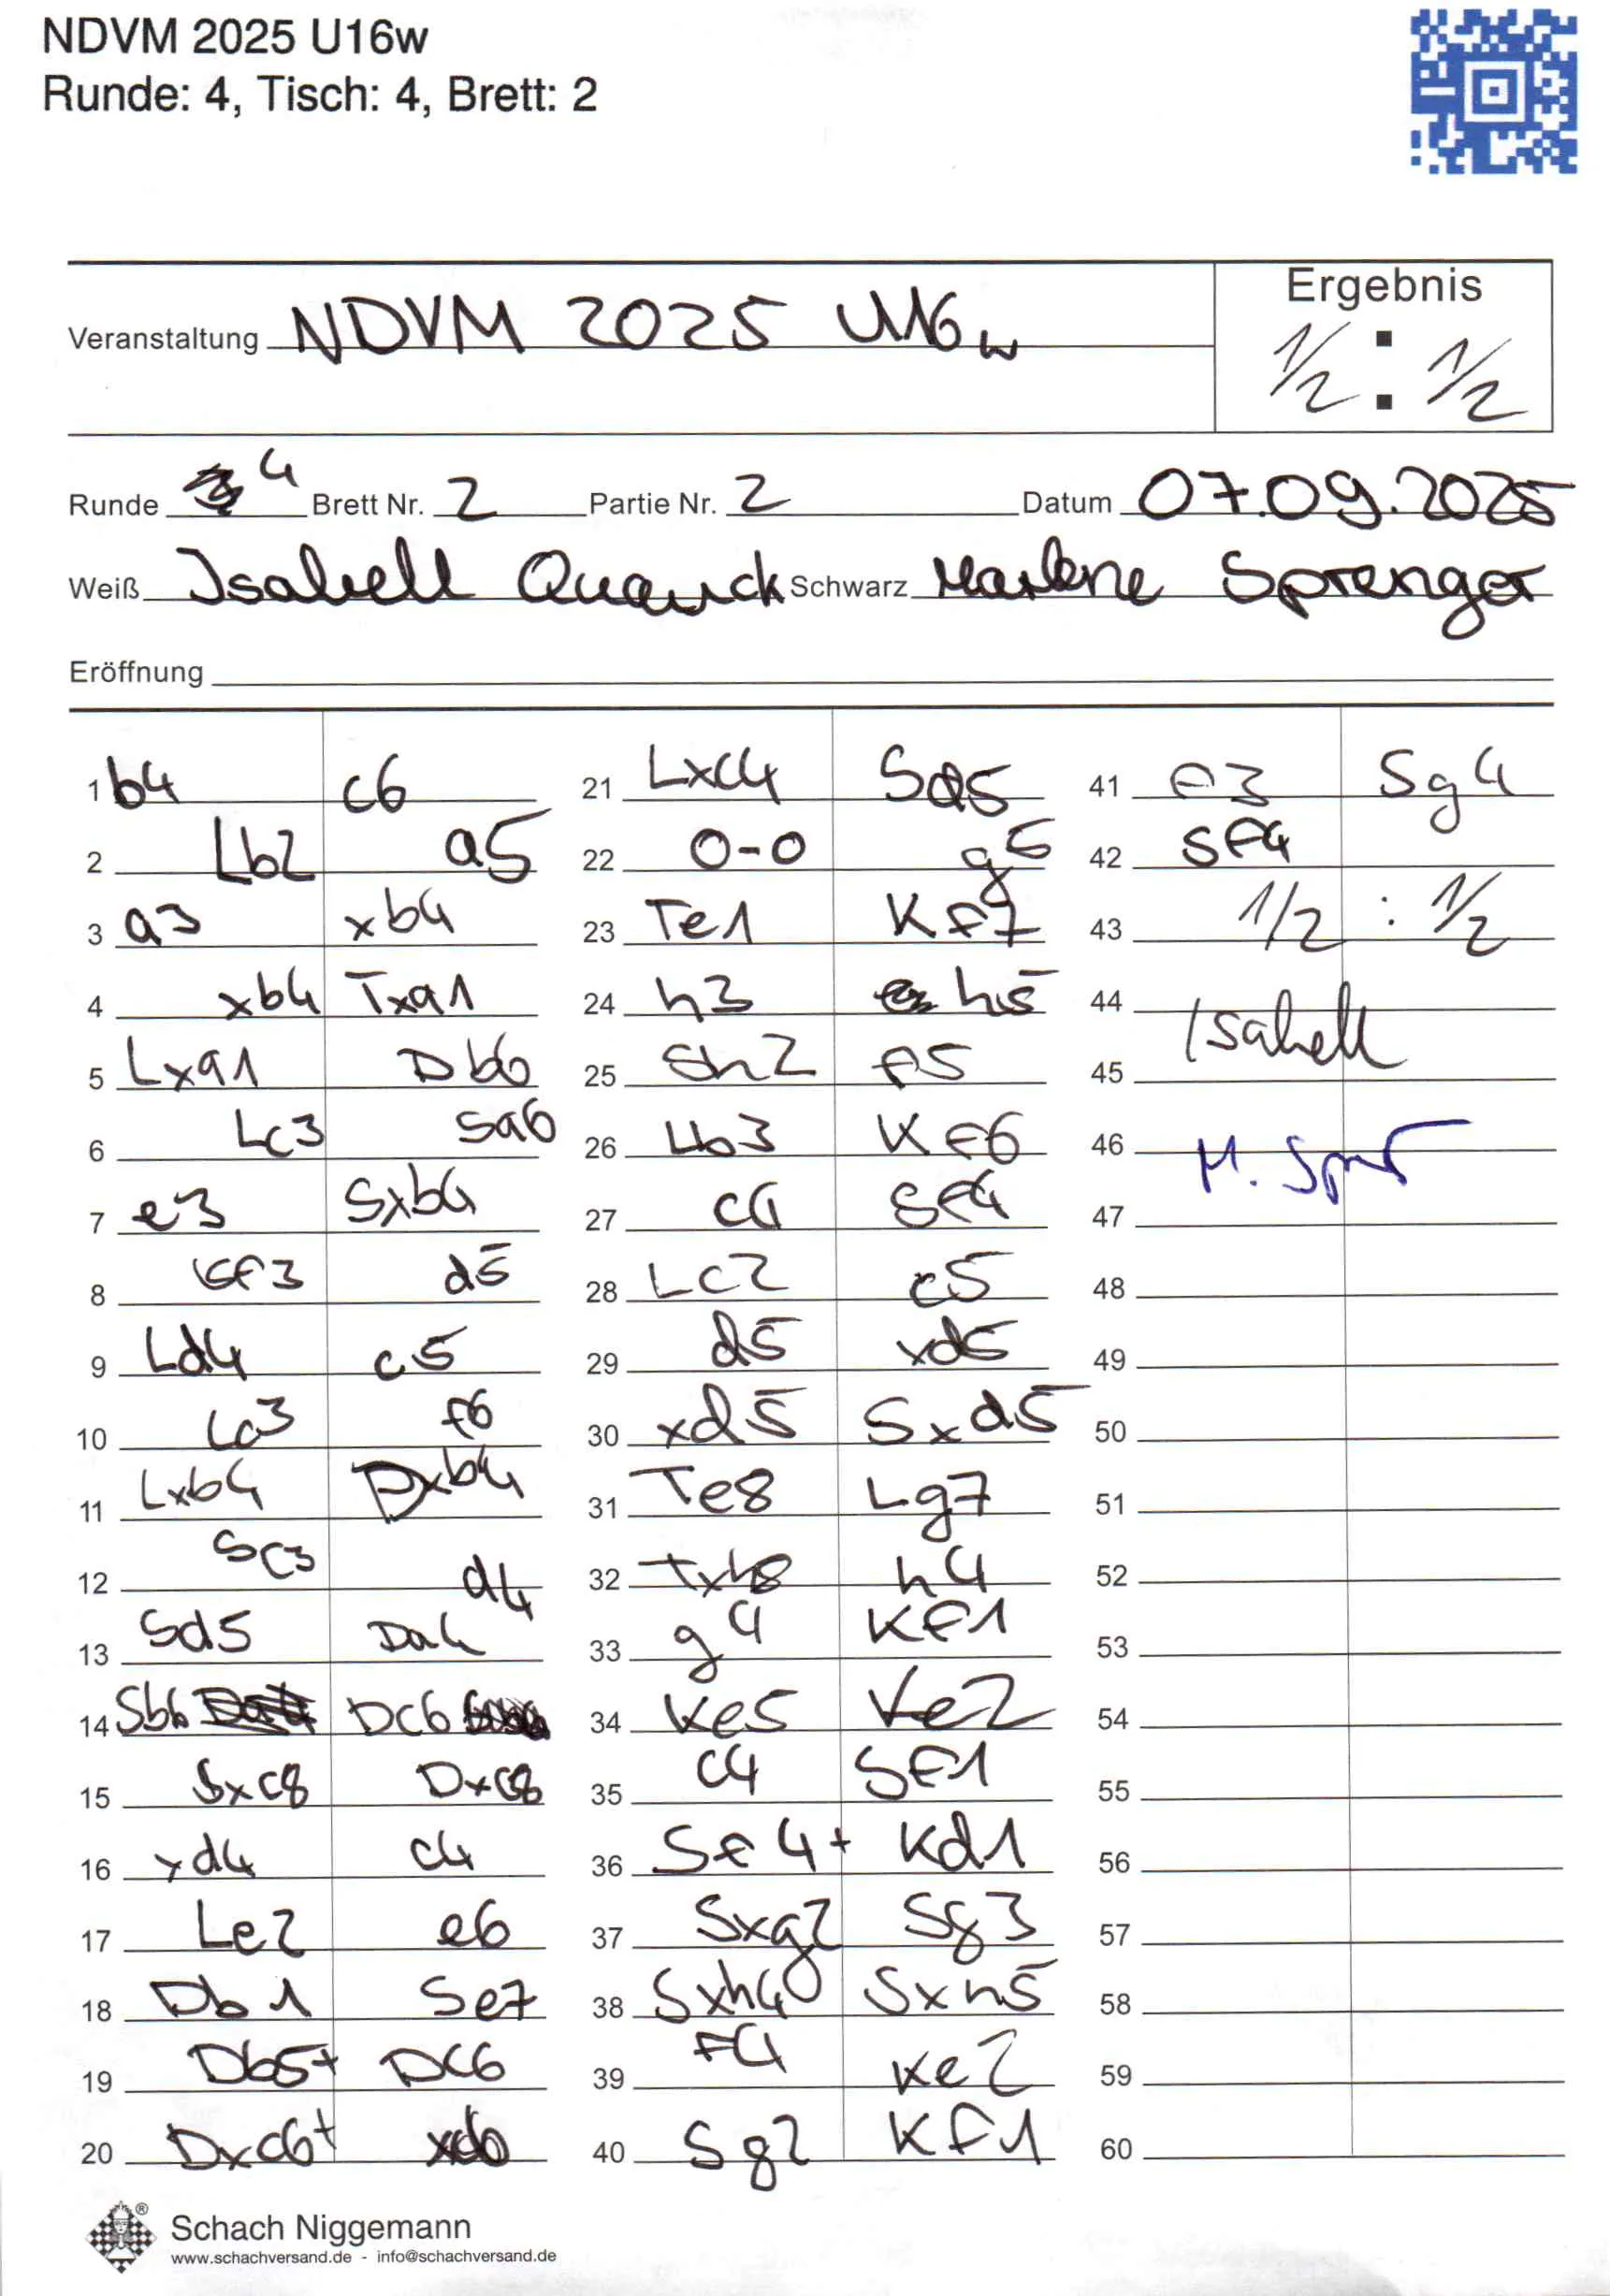 NDVM 2025 U16w
Runde: 4, Tisch: 4, Brett: 2
Veranstaltung NDVM 2025 U16w
Ergebnis
1/2 : 1/2
Runde 4 Brett Nr. 2 Partie Nr. 2 Datum 07.09.2025
Weiß Isabell Quauck Schwarz Marlene Sprenger
Eröffnung
1 b4 c6
2 Lb2 a5
3 a3 xb4
4 xb4 Txa1
5 Lxa1 Db6
6 Lc3 Sa6
7 e3 Sxb4
8 Sf3 d5
9 Ld4 c5
10 Lc3 f6
11 Lxb4 Dxb4
12 Sc3 d4
13 Sd5 Da4
14 Sb6 Dc6
15 Sxc8 Dxc8
16 xd4 c4
17 Le2 e6
18 Db1 Se7
19 Db5+ Dc6
20 Dxc6+ xc6
21 Lxc4 Sd5
22 0-0 g6
23 Te1 Kf7
24 h3 h5
25 Sh2 f5
26 Lb3 Kf6
27 c4 Sf4
28 Lc2 c5
29 d5 xd5
30 xd5 Sxd5
31 Te8 Lg7
32 Txh8 h4
33 g4 Kf1
34 Ke5 Ke2
35 c4 Sf1
36 Sf4+ Kd1
37 Sxg2 Sg3
38 Sxh4 Sxh5
39 f4 Ke2
40 Sg2 Kf1
41 f3 Sg4
42 Sf4
43 1/2 : 1/2
44 Isabell
45
46 M. Spr
47
48
49
50
51
52
53
54
55
56
57
58
59
60
Schach Niggemann
www.schachversand.de - info@schachversand.de